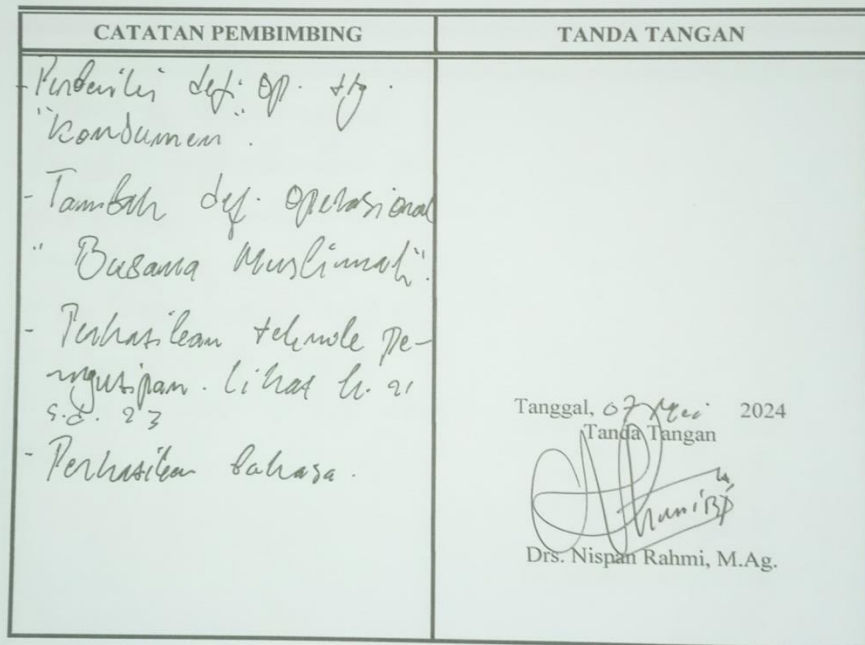 CATATAN PEMBIMBING
TANDA TANGAN
- Perbaiki def. op. ttg.
"Konsumen".
- Tambah def. operasional
" Busana Muslimah".
- Perhatikan teknik pe-
ngutipan. lihat h. 21
s.d. 23
- Perhatikan bahasa.
Tanggal, 07 Mei 2024
Tanda Tangan
Drs. Nispan Rahmi, M.Ag.